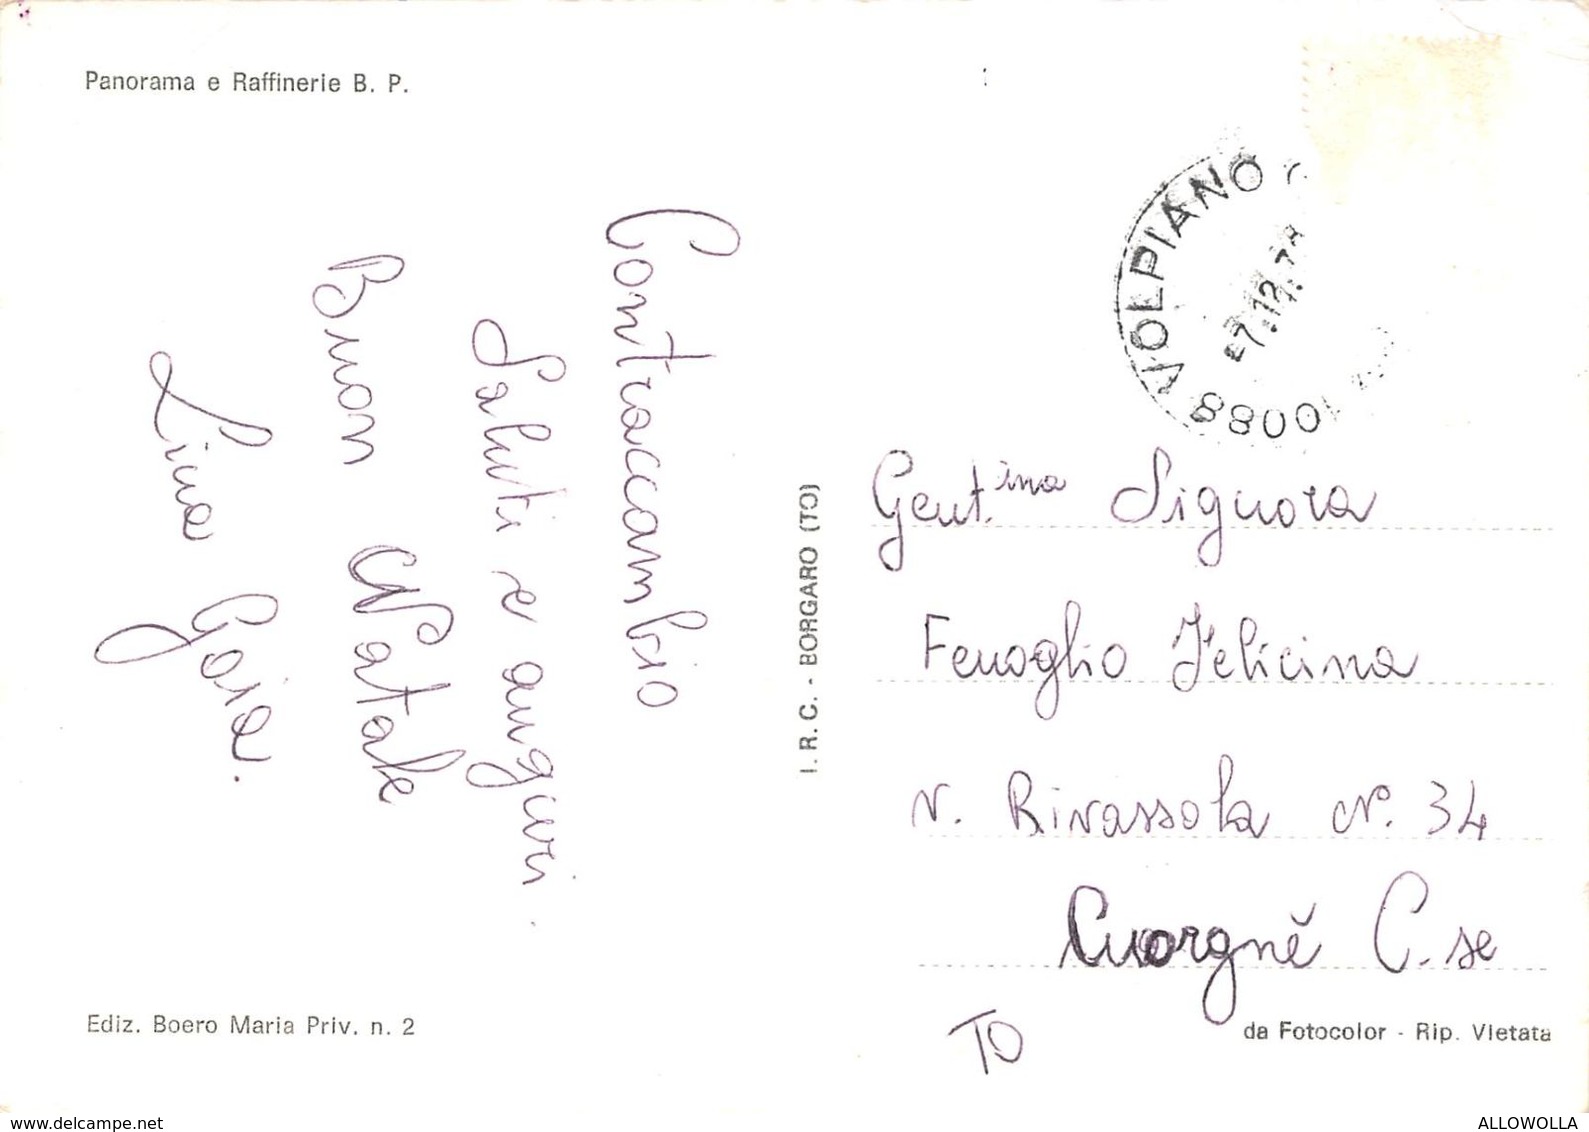 Panorama e Raffinerie B. P.
Contraccambio
Saluti e auguri.
Buon Natale
Lina Goia.
Ediz. Boero Maria Priv. n. 2
I. R. C. - BORGARO (TO)
10088 VOLPIANO
-7.12.7
Gent.ina Signora
Fenoglio Felicina
v. Rivassola N. 34
Cuorgnè C.se
TO
da Fotocolor - Rip. Vietata
www.delcampe.net
ALLOWOLLA